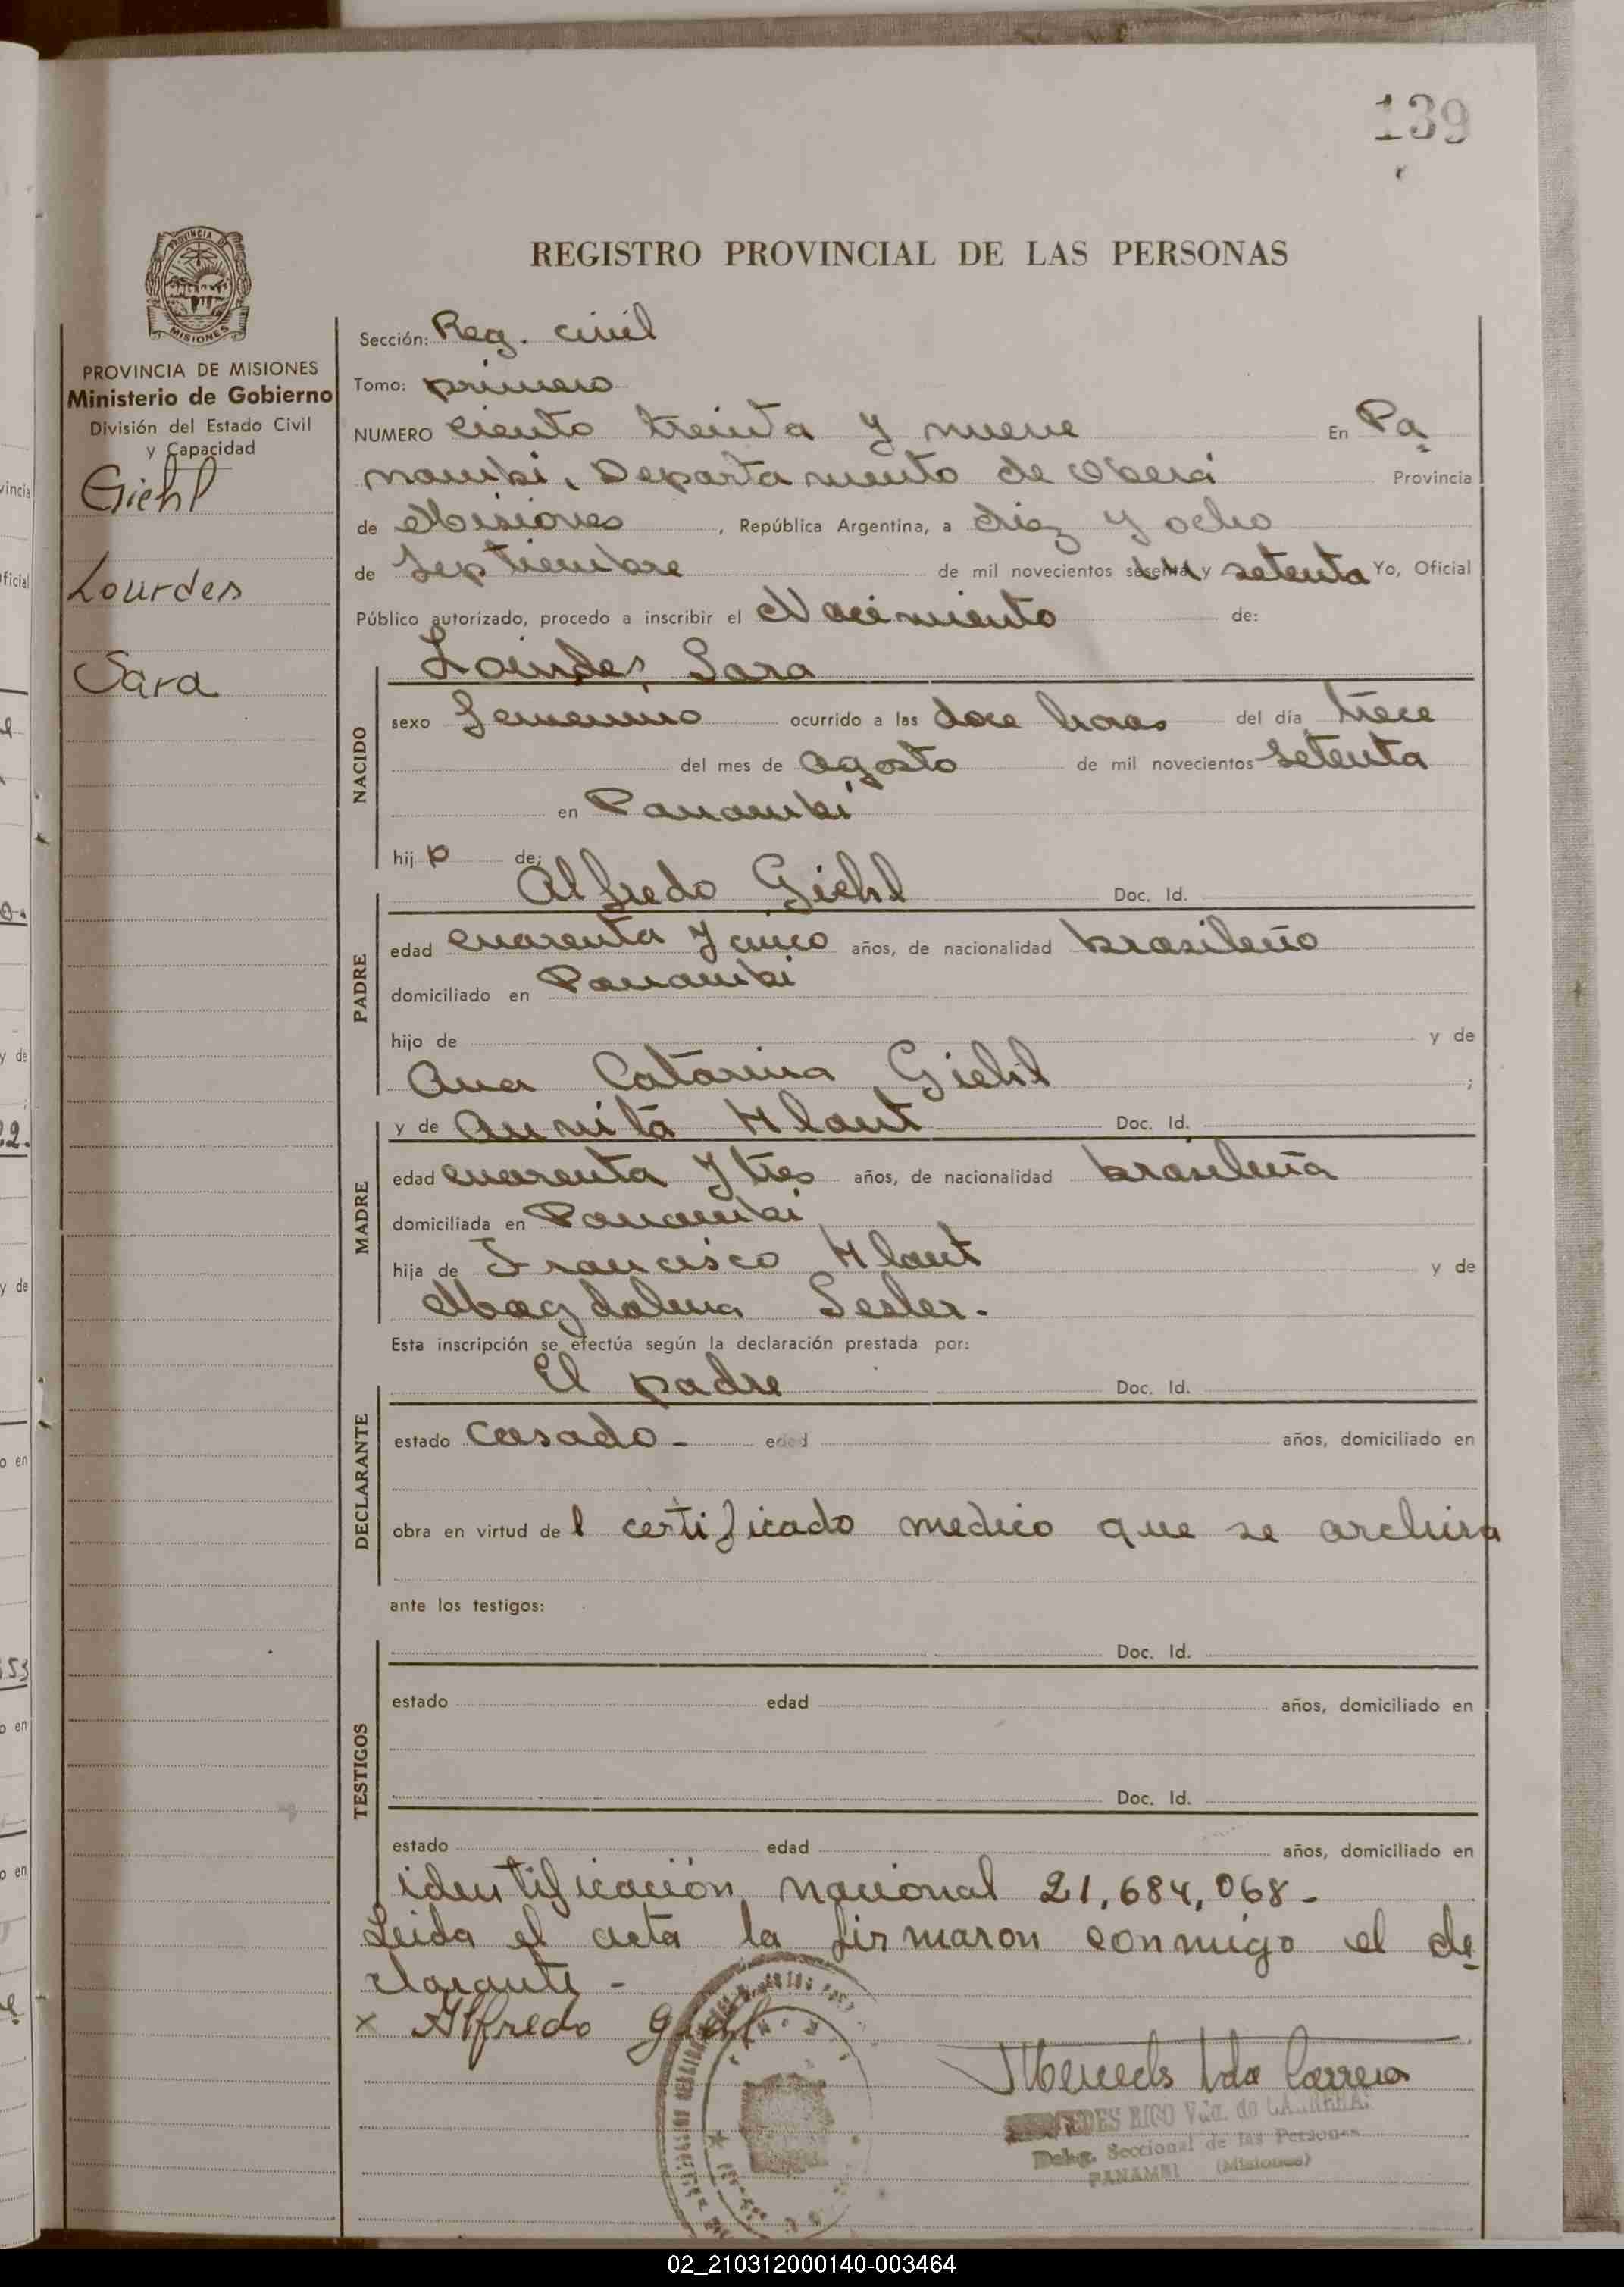 139
REGISTRO PROVINCIAL DE LAS PERSONAS
PROVINCIA DE MISIONES
Ministerio de Gobierno
División del Estado Civil
y Capacidad
Giehl
Lourdes
Sara
Sección: Reg. civil
Tomo: primero
NUMERO ciento treinta y nueve En Pa
nambi, Departamento de Oberá Provincia
de Misiones, República Argentina, a diez y ocho
de Septiembre de mil novecientos sesenta y setenta Yo, Oficial
Público autorizado, procedo a inscribir el Nacimiento de:
Lourdes Sara
NACIDO
sexo femenino ocurrido a las doce horas del día trece
del mes de agosto de mil novecientos setenta
en Panambi
hij de:
PADRE
Alfredo Giehl Doc. Id.
edad cuarenta y cinco años, de nacionalidad brasileño
domiciliado en Panambi
hijo de y de
Ana Catarina Giehl ;
MADRE
y de Annita Doc. Id.
edad cuarenta y tres años, de nacionalidad brasileña
domiciliada en Panambi
hija de Francisco y de
Magdalena
Esta inscripción se efectúa según la declaración prestada por:
DECLARANTE
El padre Doc. Id.
estado casado - edad años, domiciliado en
obra en virtud del certificado medico que se archiva
ante los testigos:
TESTIGOS
Doc. Id.
estado edad años, domiciliado en
Doc. Id.
estado edad años, domiciliado en
identificación nacional 21,684,068-
Leida el acta la firmaron conmigo el de
clarante -
x Alfredo Giehl
Mercedes Vda Carrera
MERCEDES RICO Vda. de CARRERA
Deleg. Seccional de las Personas
PANAMBI (Misiones)
02_210312000140-003464